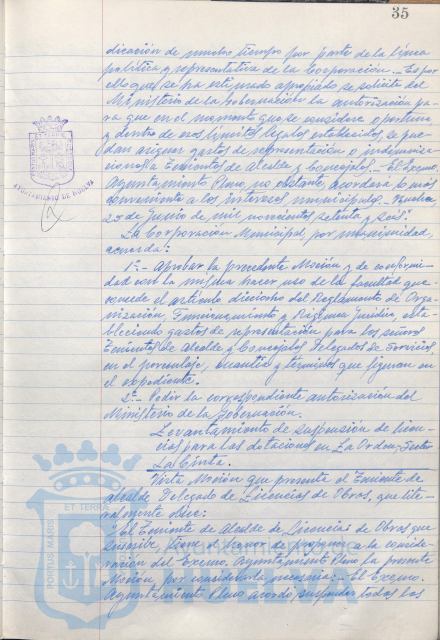 35
dicación de mucho tiempo por parte de la línea
política y representativa de la Corporación.- Es por
ello que se ha estimado apropiado se solicite del
Ministerio de la Gobernación la autorización pa-
ra que en el momento que se considere oportuno
y dentro de esos límites legales establecidos se pue-
dan asignar gastos de representación o indemniza-
ciones a Tenientes de Alcalde y Concejales.- El Excmo.
Ayuntamiento Pleno, no obstante, acordará lo más
conveniente a los intereses municipales.- Huelva,
23 de Junio de mil novecientos setenta y seis".
La Corporación Municipal, por unanimidad,
acuerda:
1º.- Aprobar la precedente Moción y de conformi-
dad con la misma hacer uso de la facultad que
concede el artículo dieciocho del Reglamento de Orga-
nización, Funcionamiento y Régimen Jurídico, esta-
bleciendo gastos de representación para los señores
Tenientes de Alcalde y Concejales Delegados de Servicios,
en el porcentaje, cuantía y términos que figuran en
el expediente.
2º.- Pedir la correspondiente autorización del
Ministerio de la Gobernación.
Levantamiento de suspensión de licen-
cias para las dotaciones en La Orden, Sector
La Cinta.
Vista Moción que presenta el Teniente de
Alcalde Delegado de Licencias de Obras, que lite-
ralmente dice:
"El Teniente de Alcalde de Licencias de Obras que
suscribe, tiene el honor de proponer a la conside-
ración del Excmo. Ayuntamiento Pleno la presente
Moción, por considerarla necesaria:- El Excmo.
Ayuntamiento Pleno acordó suspender todas las
AYUNTAMIENTO DE HUELVA
PORTUS MARIS
ET TERRAE
Ayuntamiento de
HUELVA